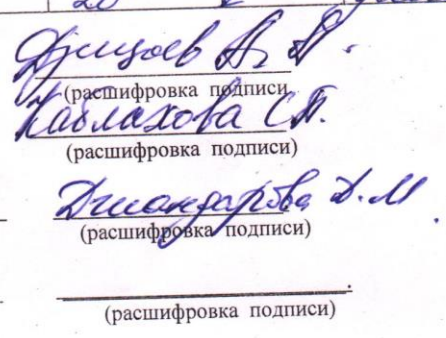 А. А.
(расшифровка подписи
Каблахова С.П.
(расшифровка подписи)
Джандарова Д. М
(расшифровка подписи)
(расшифровка подписи)